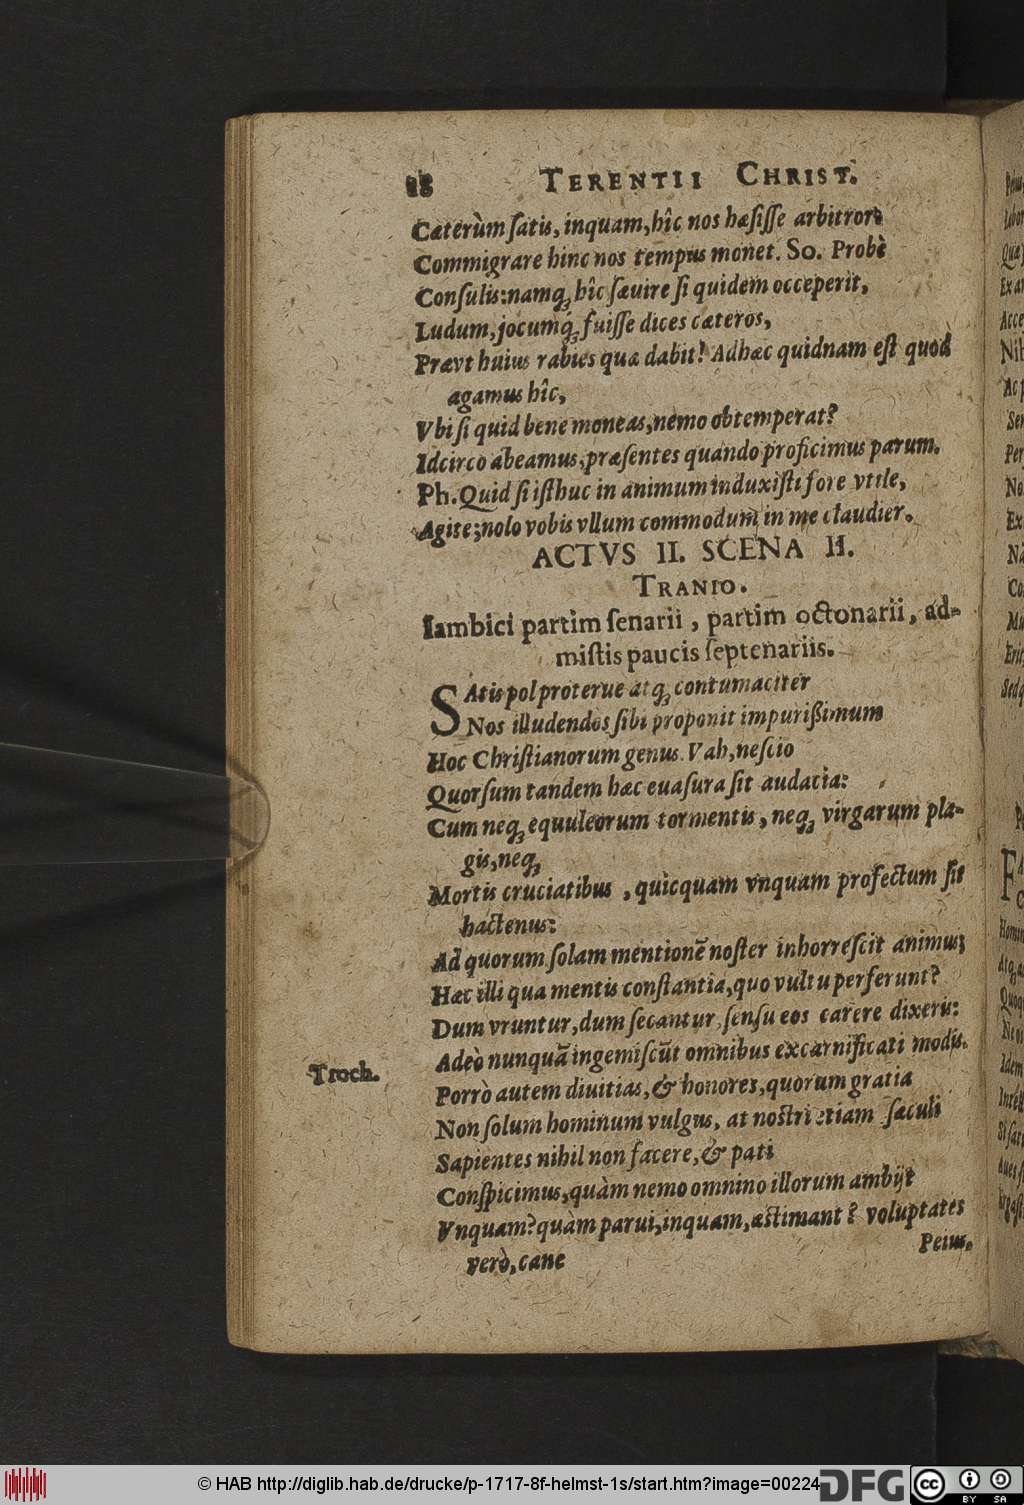 18 TERENTII CHRIST.
Cæterùm ſatis, inquam, hîc nos hæſiſſe arbitror:
Commigrare hinc nos tempus monet. So. Probè
Conſulis: namq́; hîc ſævire ſi quidem occeperit,
Ludum, jocumq́; fuiſſe dices cæteros,
Prævt huius rabies quæ dabit! Adhæc quidnam eſt quod
agamus hîc,
Vbi ſi quid bene moneas, nemo obtemperat?
Idcirco abeamus, præſentes quando proficimus parum.
Ph. Quid ſi iſthuc in animum induxiſti fore vtile,
Agite; nolo vobis vllum commodum in me claudier.
ACTVS II. SCENA II.
TRANIO.
Iambici partim ſenarii, partim octonarii, ad-
miſtis paucis ſeptenariis.
SAtis pol proterue atq; contumaciter
Nos illudendos ſibi proponit impurißimum
Hoc Chriſtianorum genus. Vah, neſcio
Quorſum tandem hæc euaſura ſit audacia:
Cum neq; equuleorum tormentis, neq; virgarum pla-
gis, neq;
Mortis cruciatibus, quicquam vnquam profectum ſit
hactenus:
Ad quorum ſolam mentionē noſter inhorreſcit animus;
Hæc illi qua mentis conſtantia, quo vultu perferunt?
Dum vruntur, dum ſecantur, ſenſu eos carere dixeris:
Adeò nunquā ingemiſcūt omnibus excarnificati modis.
Troch.
Porrò autem diuitias, & honores, quorum gratia
Non ſolum hominum vulgus, at noſtri etiam ſæculi
Sapientes nihil non facere, & pati
Conſpicimus, quàm nemo omnino illorum ambijt
Vnquam? quàm parui, inquam, æſtimant? voluptates
verò, cane
Peius.
© HAB http://diglib.hab.de/drucke/p-1717-8f-helmst-1s/start.htm?image=00224
DFG
cc
BY SA